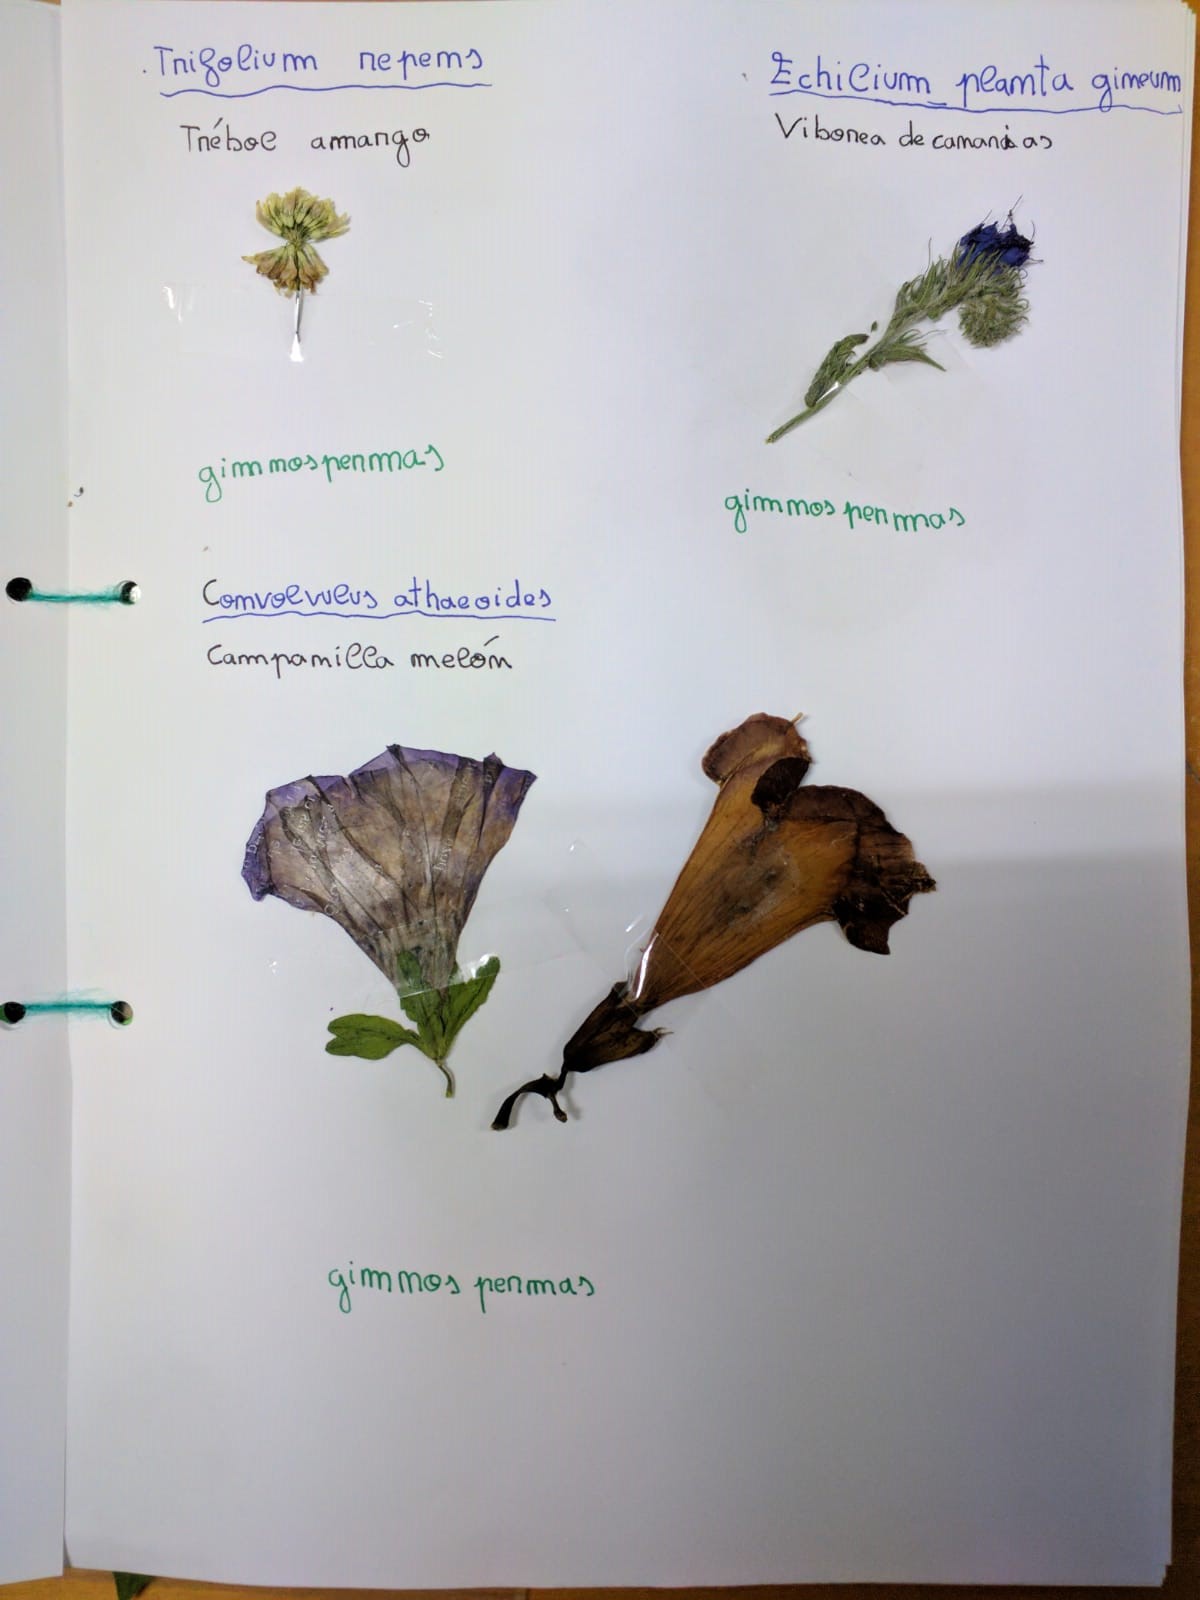 Trifolium repens
Trébol amargo
gimmospermas
Echilium planta gineum
Viborea de canarias
gimmospermas
Convolvulus athaeoides
Campanilla melón
gimmospermas